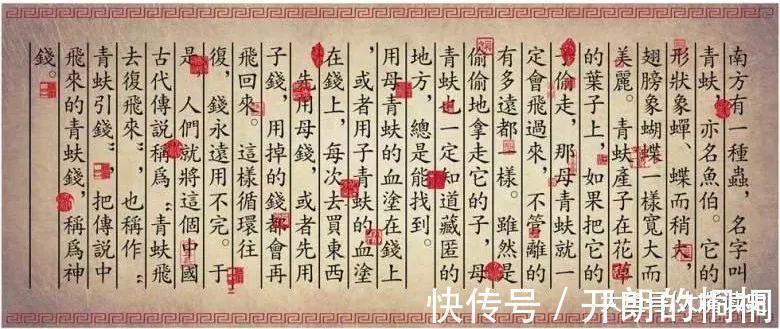 南方有一種蟲，名字叫
青蚨，亦名魚伯。它的
形狀象蟬、蝶而稍大，
翅膀象蝴蝶一樣寬大而
美麗。青蚨產子在花草
的葉子上，如果把它的
子偷走，那母青蚨就一
定會飛過來，不管離的
有多遠都一樣。雖然是
偷偷地拿走它的子，母
青蚨也一定知道藏匿的
地方，總是能找到。
用母青蚨的血塗在錢上
，或者用子青蚨的血塗
在錢上，每次去買東西
，先用母錢，或者先用
子錢，用掉的錢都會再
飛回來。這樣循環往
復，錢永遠用不完。于
是，人們就將這個中國
古代傳説稱爲“青蚨飛
去復飛來”，也稱作“
青蚨引錢”，把傳説中
飛來的青蚨錢，稱爲神
錢。
快传号 / 开朗的桐桐